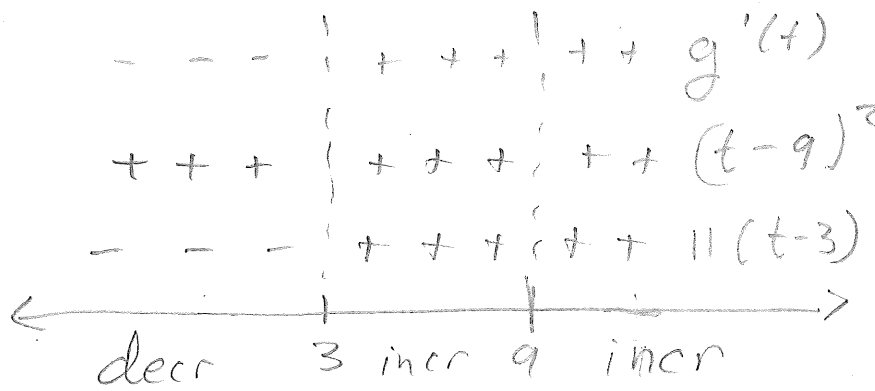 - - - + + + + + g'(t)
+ + + + + + + + (t-9)²
- - - + + + + + 11(t-3)
decr 3 incr 9 incr